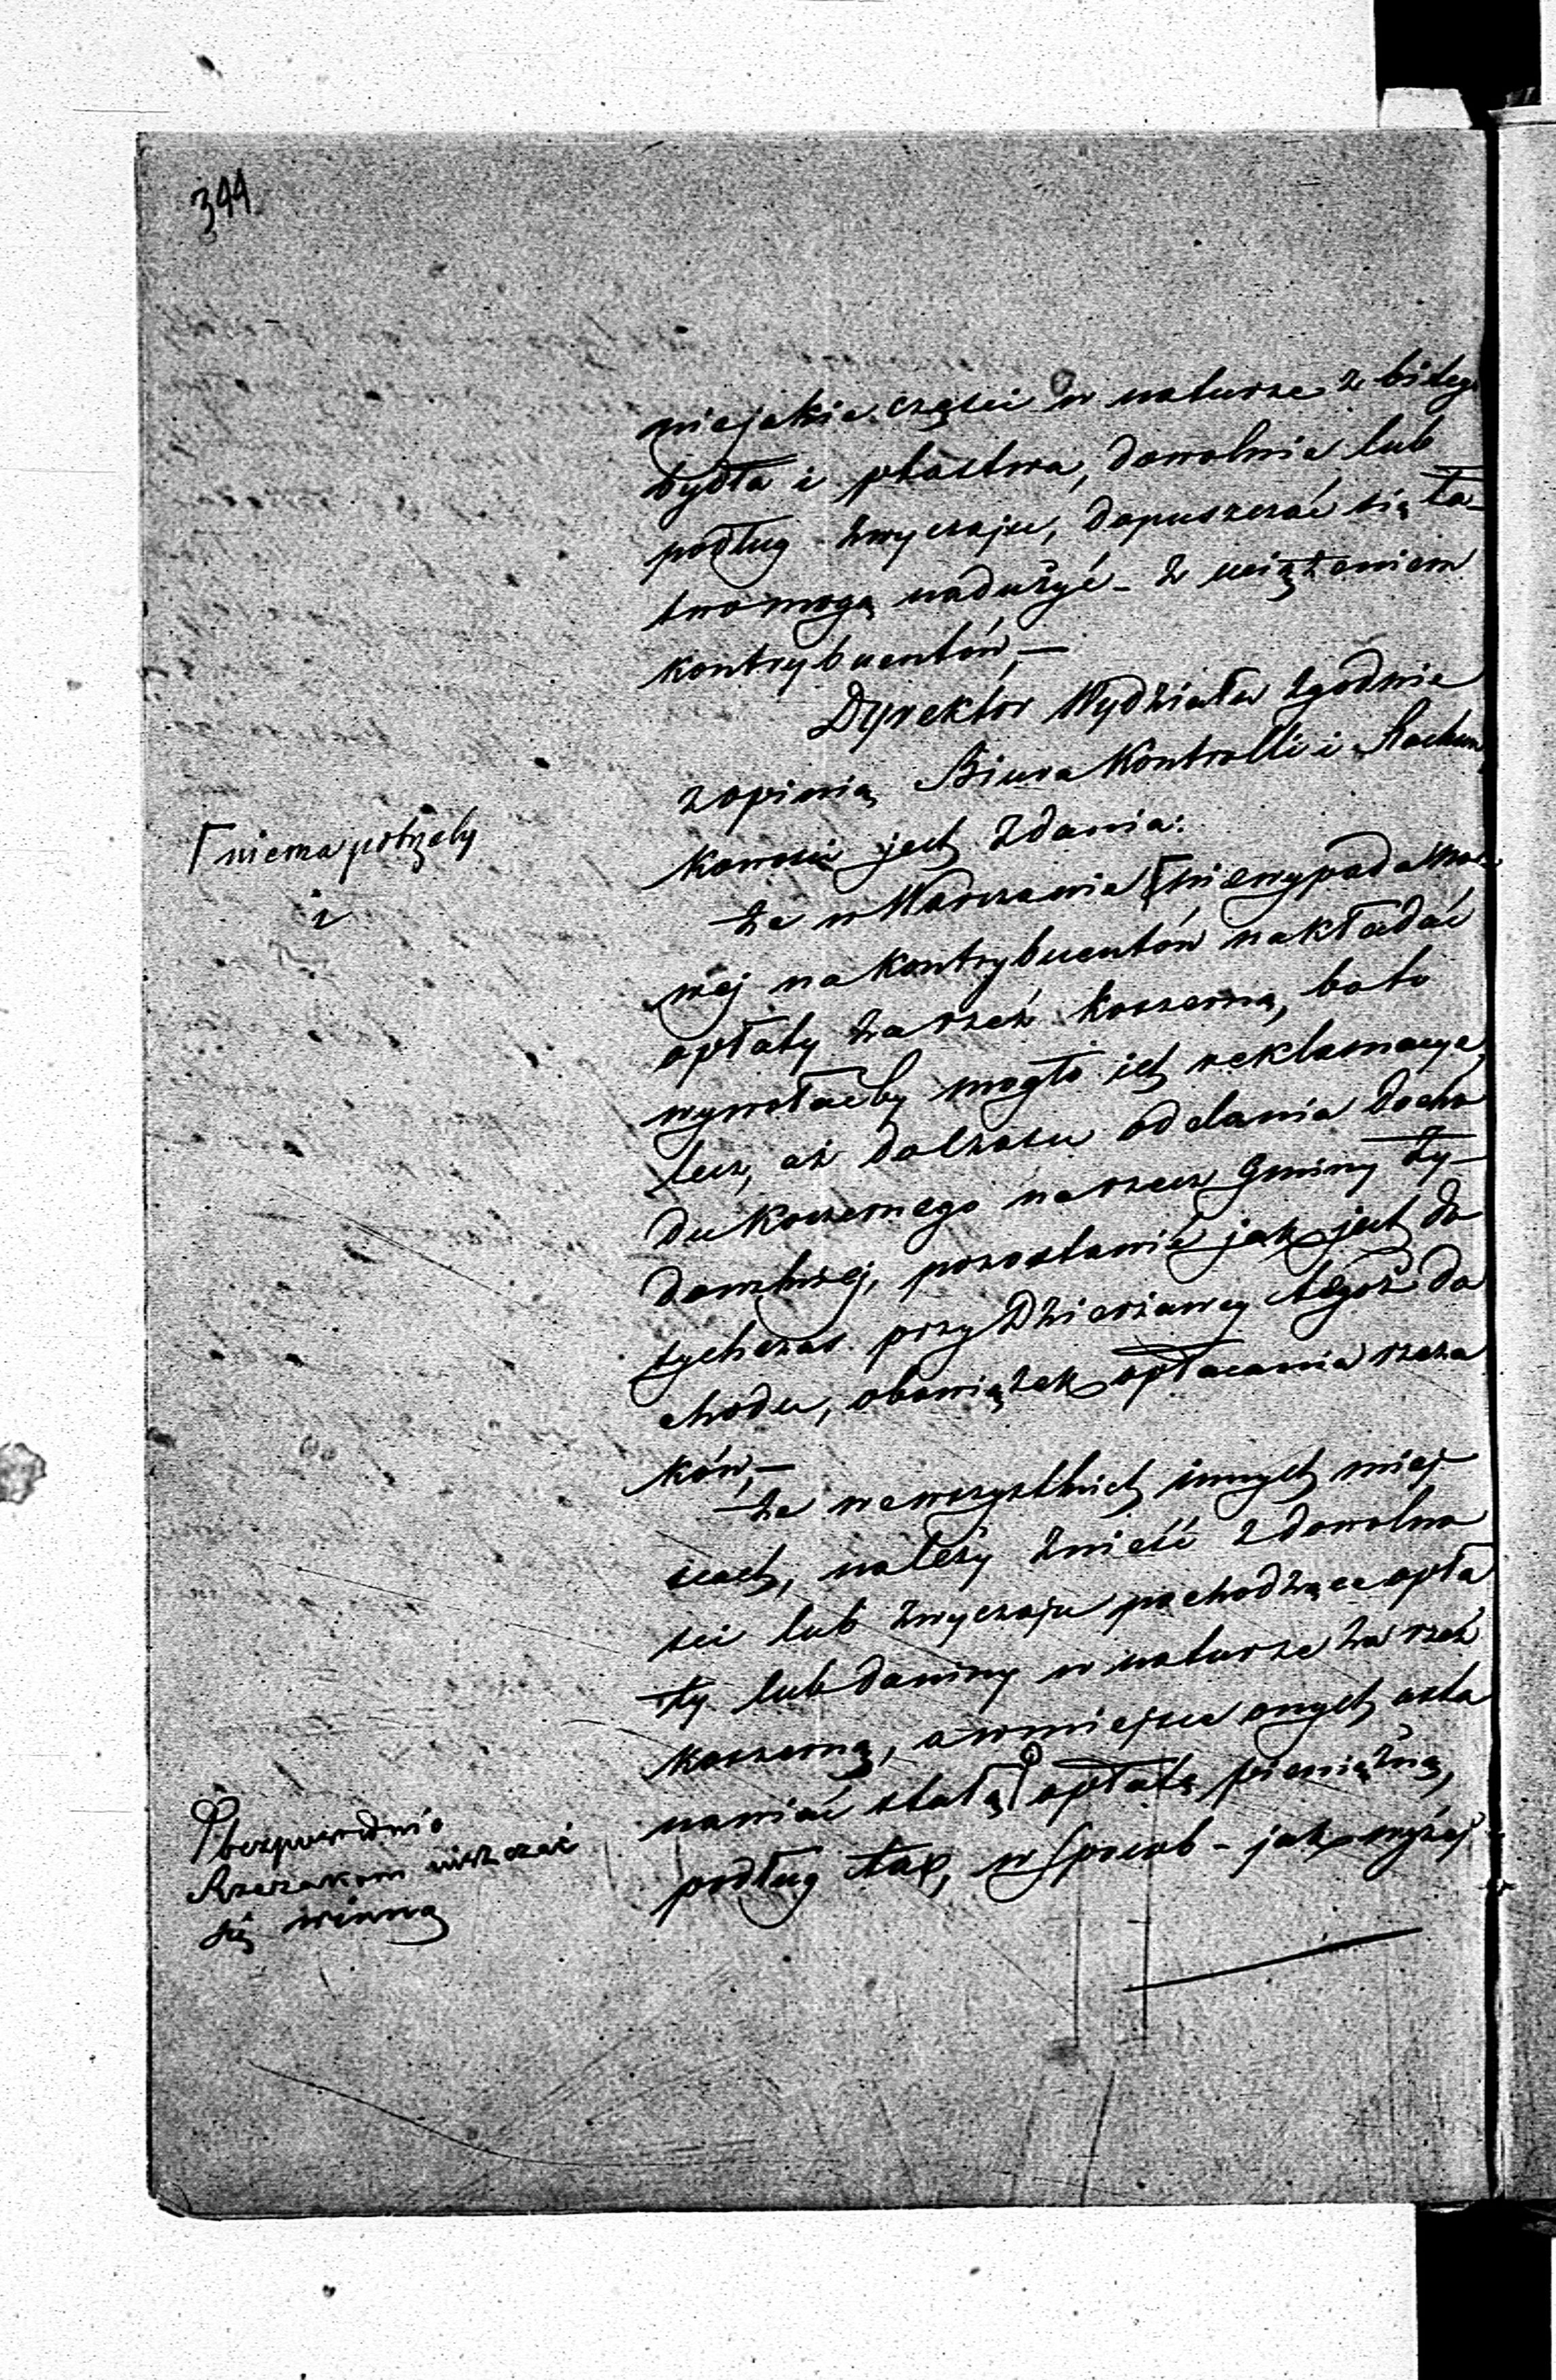 344
niejakie części w naturze z bitego
bydła i ptastwa, dowolnie lub
podług zwyczaju, dopuszczać się ła-
two mogą nadużyć – z uciążeniem
kontrybuentów, —
Dyrektor Wydziału zgodnie
z opinią Biura Kontrolli i Rachun
kowości jest zdania:
że w Warszawie ⌈ niewypada
wej na kontrybuentów nakładać
opłaty za rzeź koszerną, bo to
wywołaćby mogło ich reklamacye,
lecz, aż do czasu oddania docho
du koszernego na rzecz Gminy Ży-
dowskiej, pozostawić jak jest do
tychczas przy Dzierżawcy tegoż do
chodu, obowiązek opłacania rzeza
ków, —
że we wszystkich innych miej
scach, należy znieść z dowolno
ści lub zwyczaju pochodzące opła
ty lub daniny w naturze za rzeź
koszerną, a w miejsce onych usta
nowić stałą opłatę pieniężną,
podług tax, w sposób – jak wyżej
⌈ niema potrzeby
i
bezpośrednio
Rzezakom uiszczać
się winną